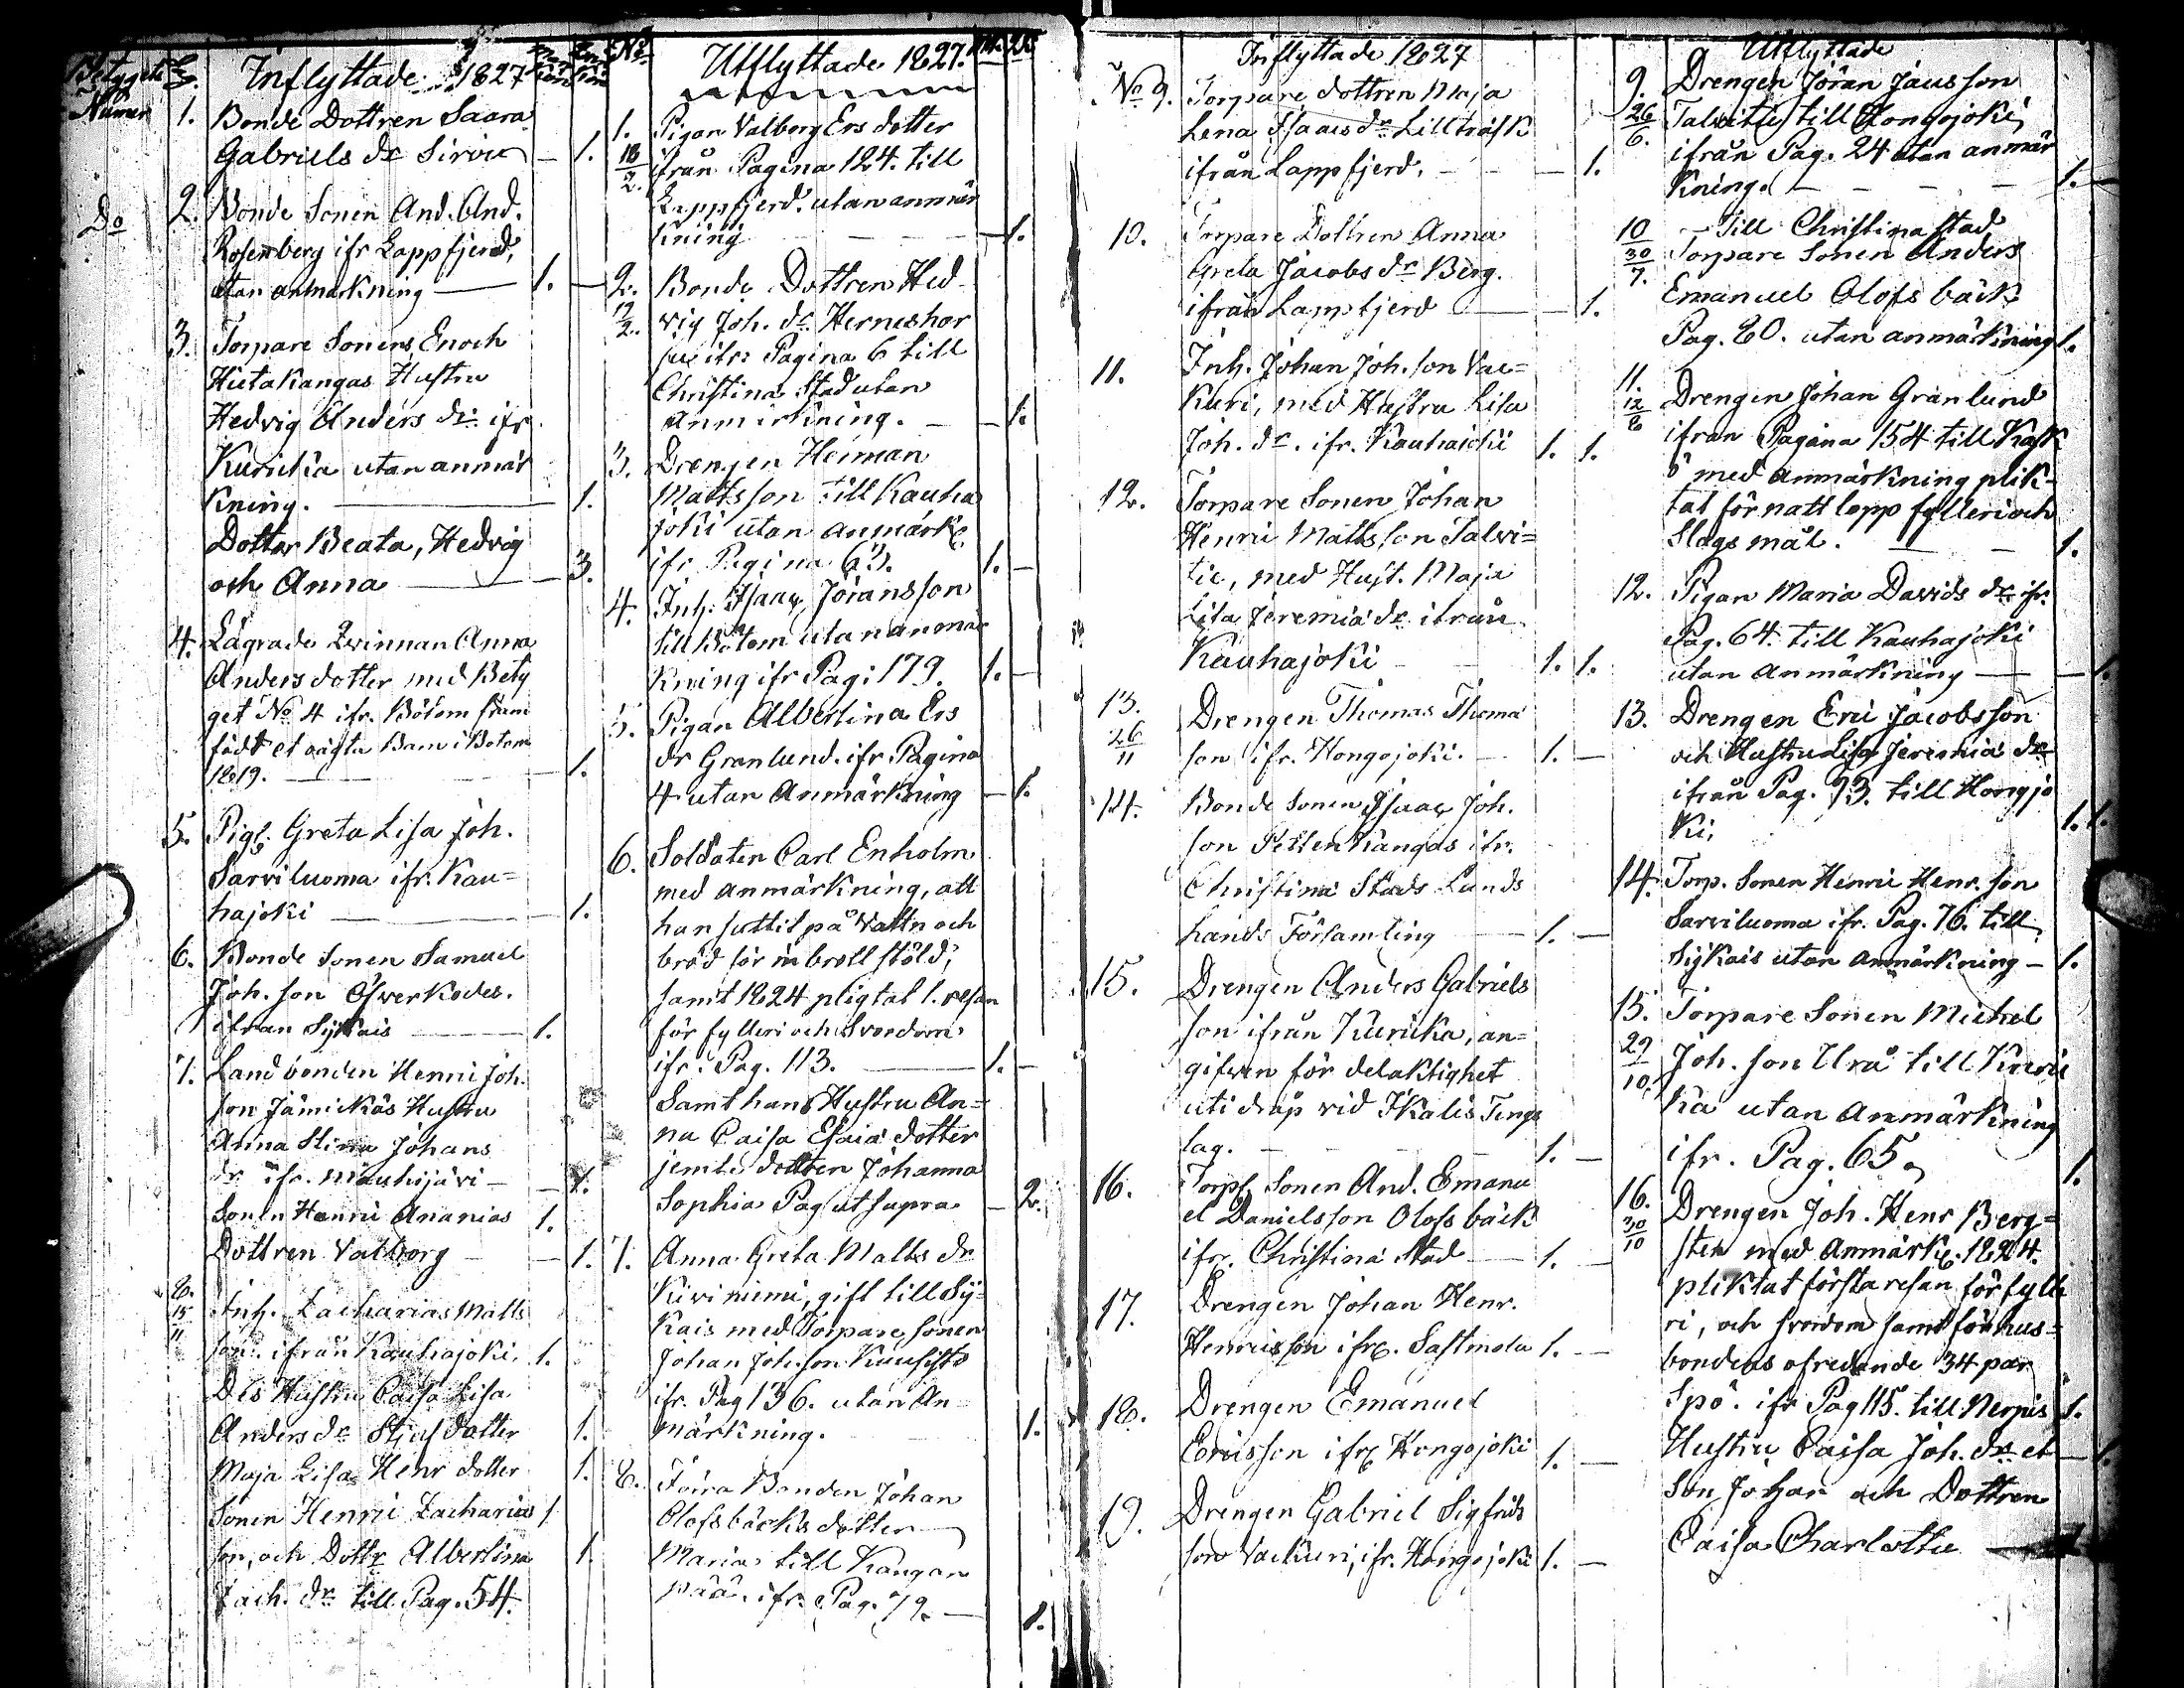 Betygets
Numer
Inflyttade 1827
1. Bonde Dottren Saara
Gabriels dr Sirviö — 1.
Do 2. Bonde Sonen And. And.
Rosenberg ifr Lappfjerd,
utan anmärkning — 1. —
3. Torpare Sonens Enoch
Hietakangas Hustru
Hedvig Anders dr ifr.
Kuricka utan anmär
kning. — 1.
Dottar Beata, Hedvig
och Anna — 3.
4. Lägrade Qvinnan Anna
Anders dotter med Bety
get No 4 ifr. Bötom fram
födt et oägta Barn i Botom
1819. — 1.
5. Pig. Greta Lisa Joh.
Sarviluoma ifr. Kau=
hajoki — 1.
6. Bonde Sonen Samuel
Joh. son Öfverkodes.
ifran Sykais — 1.
7. Landbonden Henri Joh.
son Jämickäs Hustru
Anna Stina Johans
dr ifr. Mouhijärvi — 1.
Sonen Henri Ananias 1.
Dottren Valborg — 1.
8. 15/11 Inh. Zacharias Matts
son. ifrån Kauhajoki, 1.
Des Hustru Caisa Lisa
Anders dr Stjufdotter 1.
Maja Lisa Henr dotter 1.
Sonen Henri Zacharias 1
son, och Dottr Albertina 1
Zach. dr till Pag. 54.
No Utflyttade 1827.
1. 18/2. Pigan Valborg Ers dotter
ifrån Pagina 124. till
Lappfjerd. utan anmär
kning — 1.
2. 17/2. Bonde Dottren Hed-
vig Joh. dr Herneshar
ju ifr: Pagina 6 till
Christina Stad utan
Anmärkning. — 1.
3. Drengen Heiman
Mattsson till Kauha
joki utan anmärk.
ifr Pagina 63. 1. —
4. Inh. Isaac Jöransson
till Bötom utan anmär
kning ifr Pag: 179. 1. —
5. Pigan Albertina Ers
dr Granlund. ifr. Pagina
4 utan Anmärkning — 1.
6. Soldaten Carl Enholm
med anmärkning, att
han suttit på Vattn och
bröd för inbrott stöld;
samt 1824 pligtat 1. resan
för fylleri och Svordom
ifr. Pag. 113. — 1. —
Samt hans Hustru An=
na Caisa Esaiä dotter
jemte dottren Johanna
Sophia Pag ut supra — 2.
7. Anna Greta Matts dr
Kiviniemi, gift till Sy=
kais med Torpare sonen
Johan Joh. son Kuusisto
ifr. Pag 136. utan An=
märkning. 1.
8. Förra Bonden Johan
Olofsbäcks dotter
Maria till Kangan
pää. ifr. Pag. 79. — 1.
Inflyttade 1827
No 9. Torpare dottren Maja
Lena Isaacs dr Lillträsk
ifrån Lappfjerd. — 1.
10. Torpare Dottren Anna
Greta Jacobs dr Berg.
ifrån Lappfjerd — 1.
11. Inh. Johan Joh. son Vac=
kuri, med Hustru Lisa
Joh. dr. ifr. Kauhajoki 1. 1.
12. Torpare Sonen Johan
Henric Mattsson Talvi=
tie, med Hust. Maja
Lisa Jeremiä dr ifrån
Kauhajoki 1. 1.
13. 26/11 Drengen Thomas Thoma
son ifr. Hongojoki. 1. —
14. Bonde Sonen Isaac Joh.
son Pettenkangas ifr.
Christina Stads Lands
hands Församling 1. —
15. Drengen Anders Gabriels
son ifrån Kuricka, an=
gifven för delaktighet
uti dråp vid Ikalis Tings
lag. — 1. —
16. Torp. Sonen And. Emanu
el Danielsson Olofsbäck
ifr. Christina Stad 1. —
17. Drengen Johan Henr.
Henricsson ifr. Sastmola 1. —
18. Drengen Emanuel
Ericsson ifr. Hongojoki 1. —
19. Drengen Gabriel Sigfrids
son Vackuri, ifr. Hongojoki 1. —
Utflyttade
9. 26/6. Drengen Jöran Jausson
Talvitie till Hongojoki,
ifrån Pag. 24 utan anmär
kning. — 1. —
10 30/7. — Till Christina stad
Torpare Sonen Anders
Emanuel Olofsbäck
Pag. 80. utan anmärkning 1.
11. 12/8 Drengen Johan Granlund
ifran Pagina 154 till Kask
ö med Anmärkning plik-
tat för nattlopp fylleri och
Slagsmål. — 1.
12. Pigan Maria Davids dr ifr.
Pag. 64. till Kauhajoki
utan Anmärkning — 1.
13. Drengen Eric Jacobsson
och Hustru Lisa Jeremiä dr
ifrån Pag. 93. till Hongjo
ki, 1. 1.
14. Torp. Sonen Henric Henr. son
Sarviluoma ifr. Pag. 76. till
Sykais utan anmärkning — 1.
15. 29/10. Torpare Sonen Michel
Joh. son Uro till Kuric
ka utan Anmärkning
ifr. Pag. 65. 1.
16. 30/10 Drengen Joh. Henr Berg=
sten med Anmärk. 1824.
pliktat första resan för fylle
ri, och svordom samt för hus=
bondens ofredande 34 par
Spö. ifr Pag 115. till Nerpis 1.
Hustru Caisa Joh. dr et — 1.
Son Johan och Dottren
Caisa Charlotta —